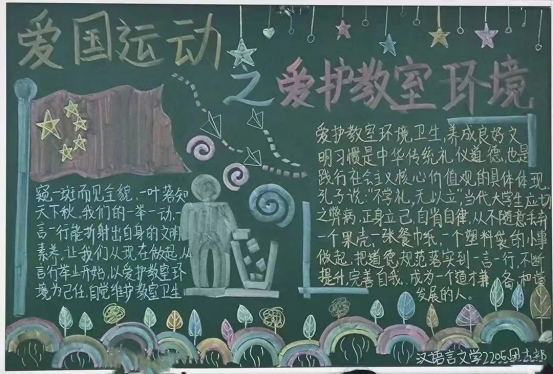 爱国运动
之爱护教室环境
窥一斑而见全貌,一叶落知
天下秋。我们的一举一动,一
言一行能折射出自身的文明
素养,让我们从现在做起,从
言行举止开始,以爱护教室环
境为己任,自觉维护教室卫生
爱护教室环境卫生,养成良好文
明习惯是中华传统礼仪道德,也是
践行社会主义核心价值观的具体体现,
孔子说:“不学礼,无以立”,当代大学生应切
之弊病,正身立己,自省自律,从不随意丢弃
一个果壳、一张餐巾纸、一个塑料袋的小事
做起,把道德规范落实到一言一行,不断
提升、完善自我,成为一个道才兼备和谐
发展的人。
汉语言文学2205团支部